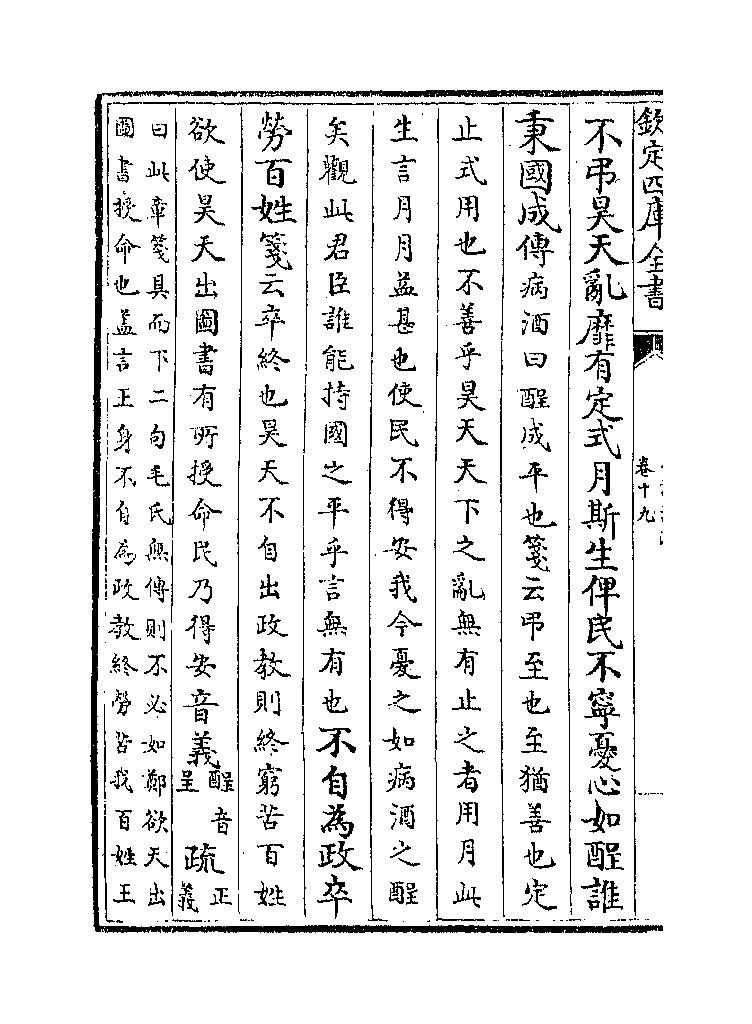 欽定四庫全書
卷十九
不弔昊天亂靡有定式月斯生俾民不寧憂心如酲誰
秉國成傳病酒曰酲成平也箋云弔至也至猶善也定
止式用也不善乎昊天天下之亂無有止之者用月此
生言月月益甚也使民不得安我今憂之如病酒之酲
矣觀此君臣誰能持國之平乎言無有也不自為政卒
勞百姓箋云卒終也昊天不自出政教則終窮苦百姓
欲使昊天出圖書有所授命民乃得安音義酲音呈疏正義
曰此章箋具而下二句毛氏無傳則不必如鄭欲天出
圖書授命也蓋言王身不自為政教終勞苦我百姓王